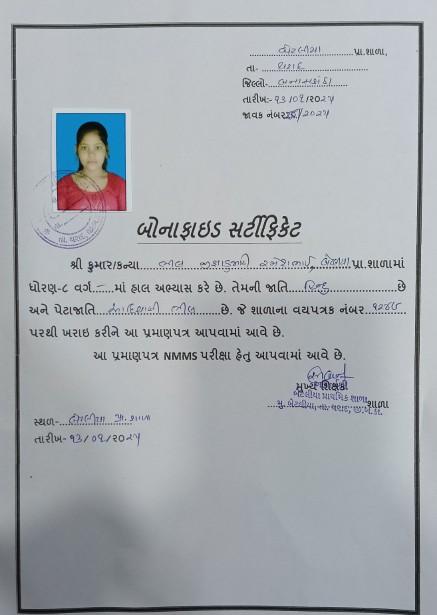 પ્રા.શાળા,
તા- થરાદ
જિલ્લો- બનાસકાંઠા
તારીખ:- ૧૩/૦૧/૨૦૨૫
જાવક નંબર /૨૦૨૫
બોનાફાઇડ સર્ટીફિકેટ
શ્રી કુમાર/કન્યા ભીલ રમેશભાઈ પ્રા.શાળામાં
ધોરણ-૮ વર્ગ.- માં હાલ અભ્યાસ કરે છે. તેમની જાતિ હિન્દુ છે
અને પેટાજાતિ ભીલ છે. જે શાળાના વયપત્રક નંબર
પરથી ખરાઇ કરીને આ પ્રમાણપત્ર આપવામાં આવે છે.
આ પ્રમાણપત્ર NMMS પરીક્ષા હેતુ આપવામાં આવે છે.
મુખ્ય શિક્ષકશ્રી
બેટલીયા પ્રાથમિક શાળા
મુ. બેટલીયા, તા. થરાદ, જી.બ.કાં. શાળા
સ્થળ- પ્રા. શાળા
તારીખ- ૧૩/૦૧/૨૦૨૫
તા. થરાદ, જી.બ.